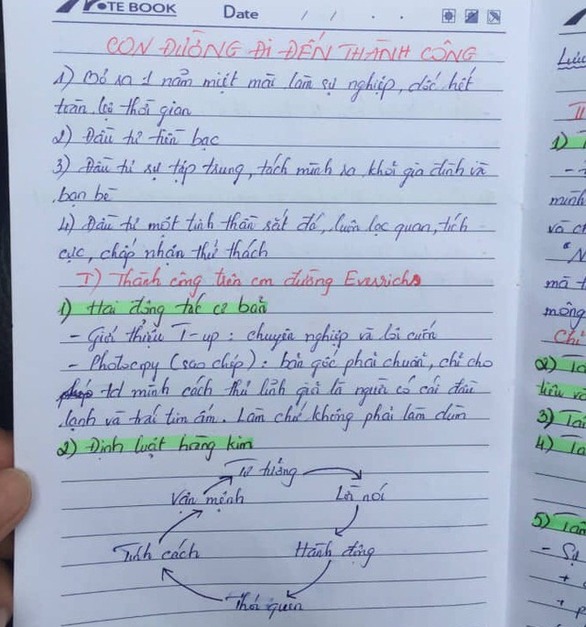 NOTE BOOK
Date / / . .
CON ĐƯỜNG ĐI ĐẾN THÀNH CÔNG
1) Bỏ ra 1 năm miệt mài làm sự nghiệp, dốc hết
toàn bộ thời gian
2) Đầu tư tiền bạc
3) Đầu tư sự tập trung, tách mình ra khỏi gia đình và
bạn bè
4) Đầu tư một tinh thần sắt đá, luôn lạc quan, tích
cực, chấp nhận thử thách
I) Thành công trên con đường Everrichs
1) Hai động tác cơ bản
- Giới thiệu T-up : chuyên nghiệp và lôi cuốn
- Photocopy (sao chép) : bản gốc phải chuẩn, chỉ cho
td mình cách thủ lĩnh giỏi là người có cái đầu
lạnh và trái tim ấm. Làm chứ không phải làm dùm
2) Định luật hàng kim
Tư tưởng
Vận mệnh Lời nói
Tính cách Hành động
Thói quen
Lúc
II
1)
mình
và c
"N
mà t
mông
Chỉ
2)
tiêu
3) Tại
4)
5)
- Sự
+
+